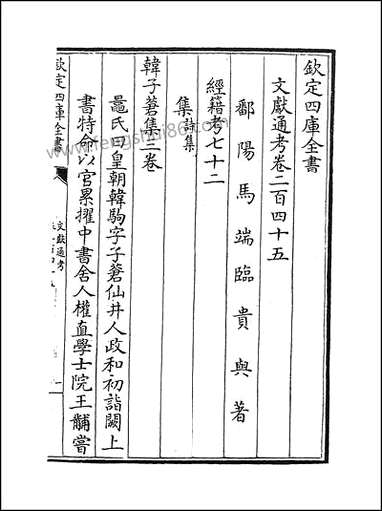 欽定四庫全書
文獻通考卷二百四十五
鄱陽馬端臨貴與著
經籍考七十二
集詩集
韓子蒼集三卷
鼂氏曰皇朝韓駒字子蒼仙井人政和初詣闕上
書特命以官累擢中書舍人權直學士院王黼嘗
欽定四庫全書
文獻通考
www.fengshui86.com